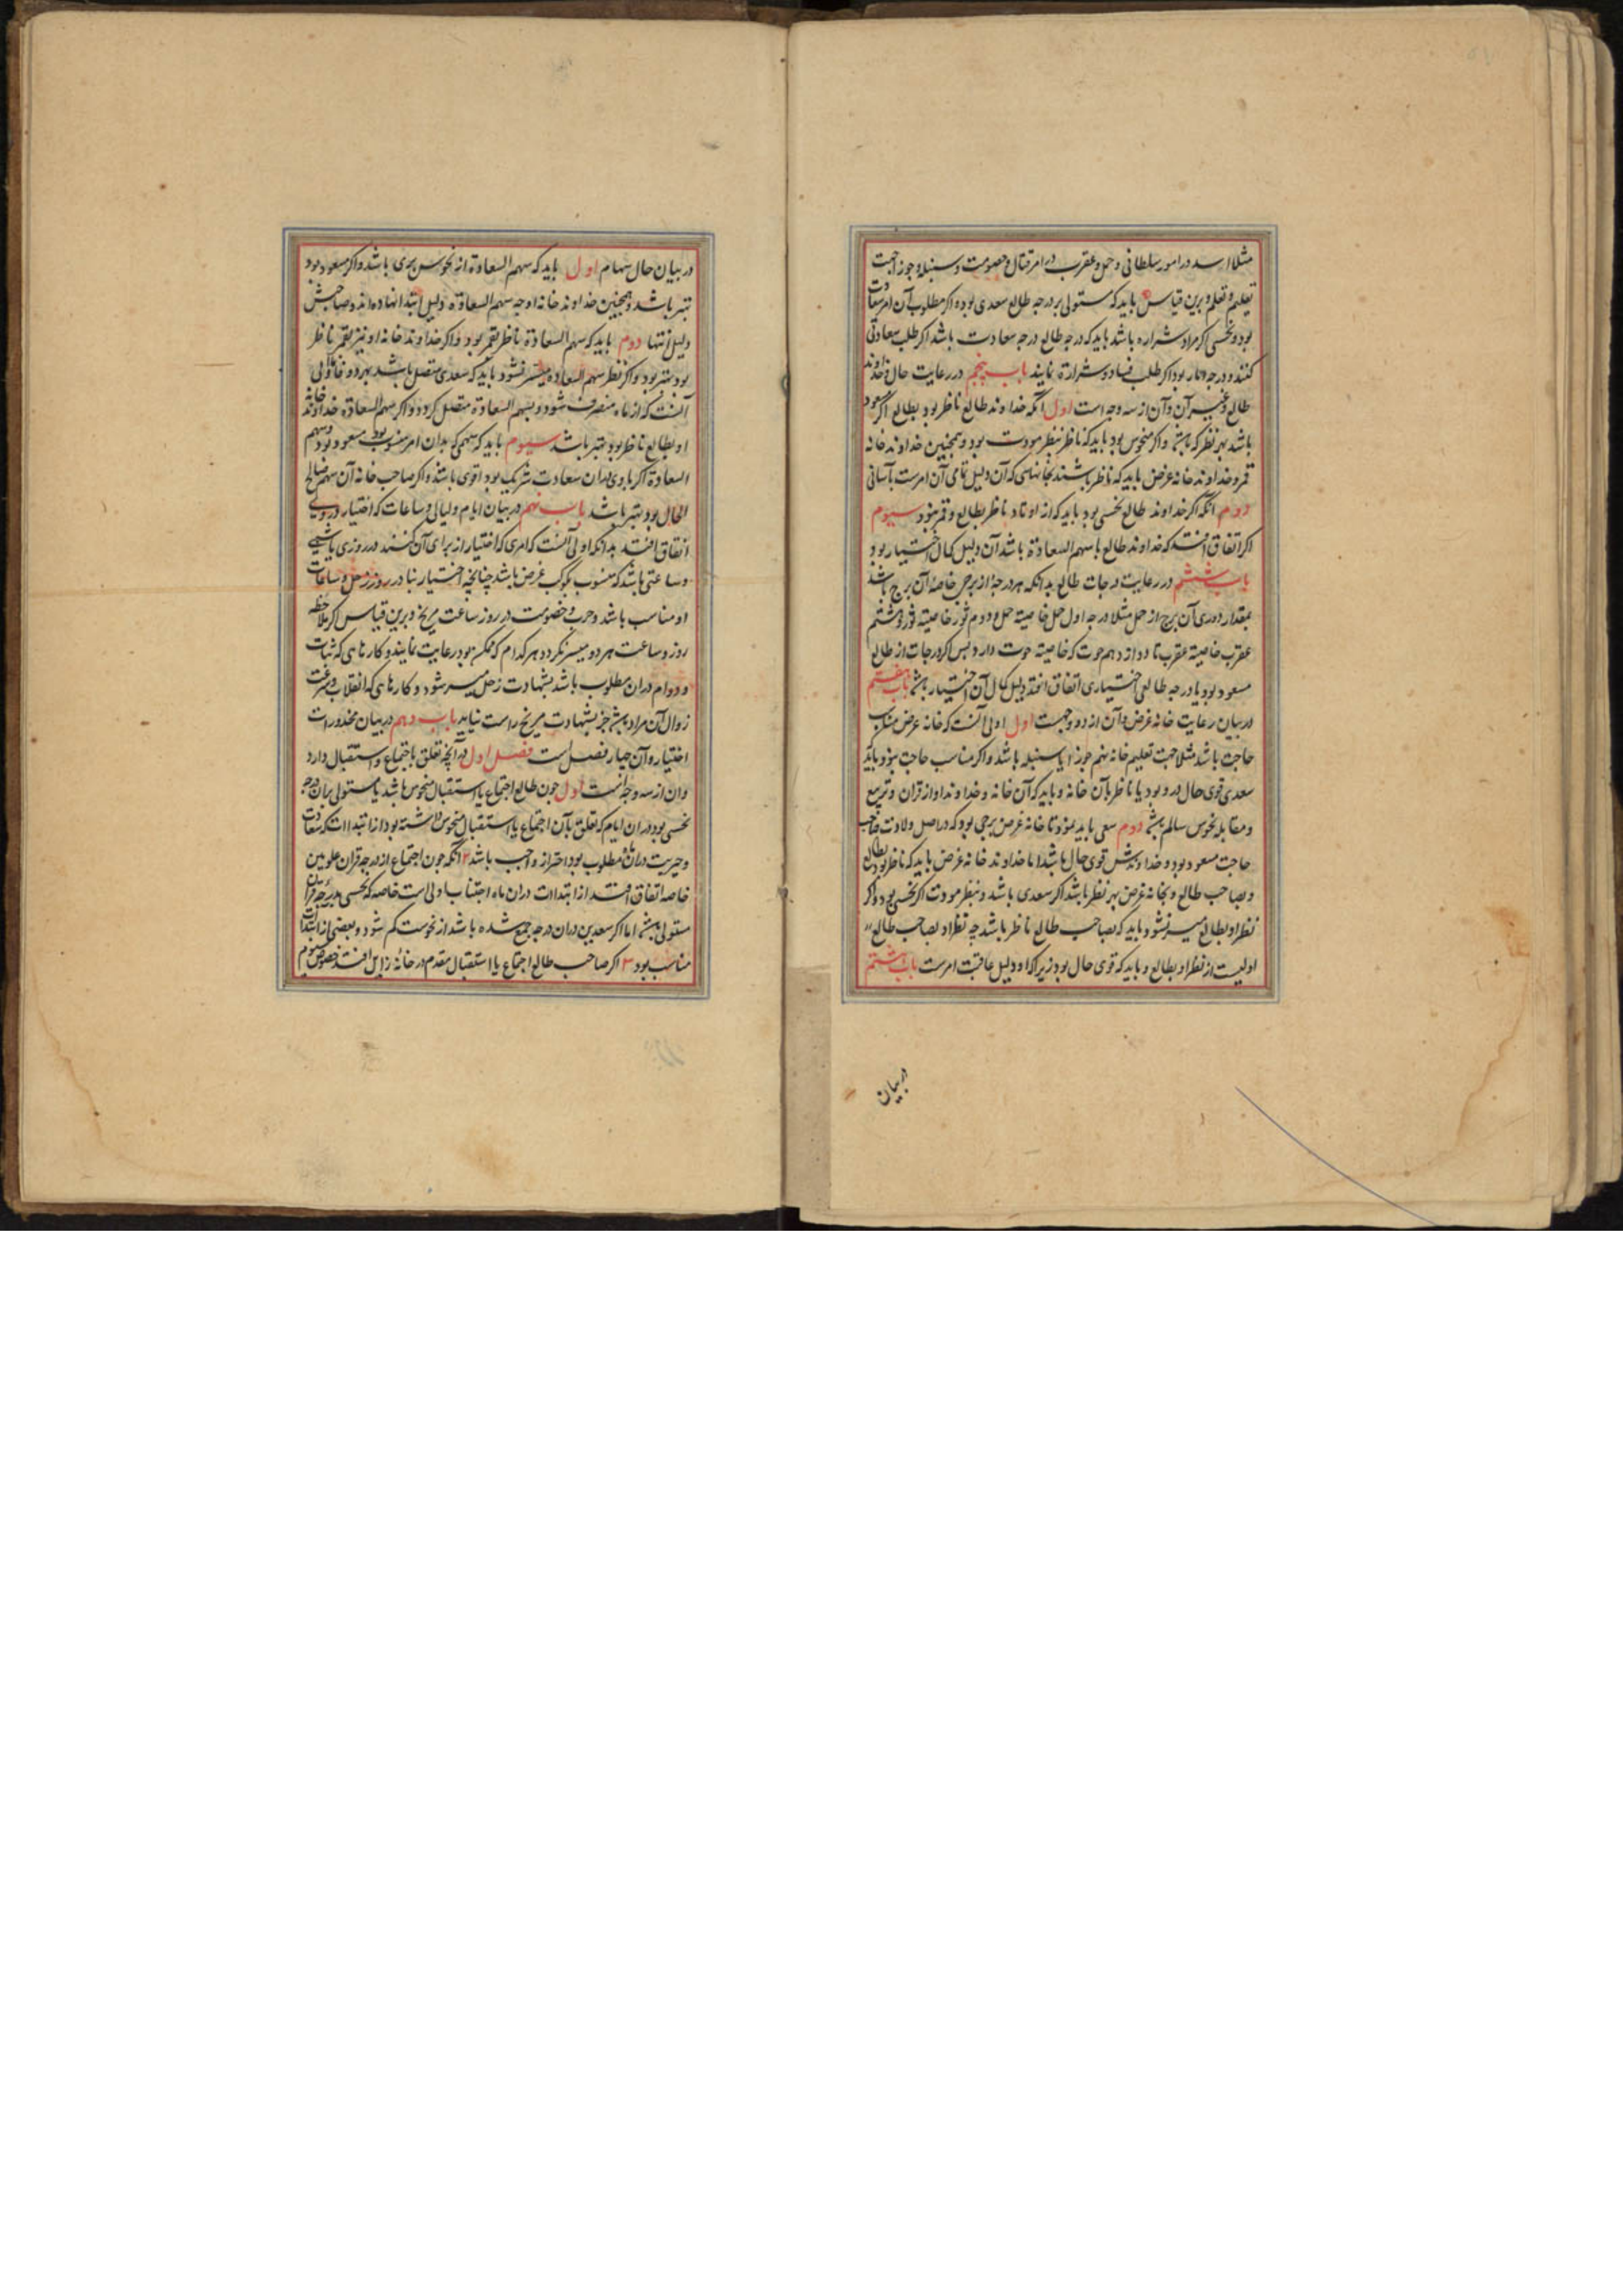 مثلا اسد در امور سلطانی و حمل و عقرب در امر قتال و خصومت و سنبله و جوزا جهت
تعلیم و تعلم و برین قیاس باید که مستولی بر درجه طالع سعدی بود اکر مطلوب آن امر سعادت
بود و نحسی اکر مراد شراره باشد باید که درجه طالع درجه سعادت باشد اکر طلب سعادتی
کنند و درجه بود اکر طلب فساد و شرارة نمایند باب پنجم در رعایت حال خداوند
طالع و غیر آن و آن از سه وجه است اول آنکه خداوند طالع ناظر بود بطالع اکر مسعود
باشد بهر نظر که باشد و اکر منحوس بود باید که ناظر بنظر مودت بود و همچنین خداوند خانه
قمر و خداوند خانه غرض باید که ناظر باشند بخانهای که آن دلیل تمامی آن امرست بآسانی
دوم آنکه اکر خداوند طالع نحسی بود باید که از اوتاد ناظر بطالع و قمر نبود سیوم
اکر اتفاق افتد که خداوند طالع با سهم السعادة باشد آن دلیل کمال اختیار بود
باب ششم در رعایت درجات طالع بدانکه هر درجه از برجی خاصه آن برج باشد
بمقدار دوری آن برج از حمل مثلا درجه اول حمل خاصیته حمل و دوم ثور خاصیته ثور و هشتم
عقرب خاصیته عقرب تا دوازدهم حوت که خاصیته حوت دارد پس اکر درجات از طالع
مسعود بود یا درجه طالعی اختیاری اتفاق افتد دلیل کمال آن اختیار باشد باب هفتم
در بیان رعایت خانه غرض و آن از دو وجهست اول اولی آنست که خانه غرض مناسب
حاجت باشد مثلا جهت تعلیم خانه نهم جوزا یا سنبله باشد و اکر مناسب حاجت نبود باید
سعدی قوی حال درو بود یا ناظر بآن خانه و باید که آن خانه و خداوند او از قران و تربیع
و مقابله نحوس سالم باشد دوم سعی باید نمود تا خانه غرض برجی بود که در اصل ولادت صاحب
حاجت مسعود بود و خداوندش قوی حال باشد اما خداوند خانه غرض باید که ناظر بود بطالع
و بصاحب طالع و بخانه غرض بهر نظر باشد اکر سعدی باشد و بنظر مودت اکر نحسی بود و اکر
نظر او بطالع میسر نشود باید که بصاحب طالع ناظر باشد چه نظر او بصاحب طالع
اولیست از نظر او بطالع و باید که قوی حال بود زیرا که او دلیل عاقبت امرست باب هشتم
در بیان
در بیان حال سهام اول باید که سهم السعادة از نحوس بری باشد و اکر مسعود بود
بهتر باشد و همچنین خداوند خانه او چه سهم السعادة دلیل ابتدا نهاده اند و صاحبش
دلیل انتها دوم باید که سهم السعادة ناظر بقمر بود و اکر خداوند خانه او نیز بقمر ناظر
بود بهتر بود و اکر نظر سهم السعاده میسر نشود باید که سعدی متصل باشد بهر دو و اولی
آنست که از ماه منصرف شود و بسهم السعادة متصل کردد و اکر سهم السعادة و خداوند خانه
او بطالع ناظر بود بهتر باشد سیوم باید که سهمی که بدان امر منسوب بود مسعود بود و سهم
السعادة اکر با وی بدان سعادت شریک بود اقوی باشد و اکر صاحب خانه آن سهم صالح
الحال بود بهتر باشد باب نهم در بیان ایام و لیالی و ساعات که اختیار در وی
اتفاق افتد بدانکه اولی آنست که امری که اختیار از برای آن کنند در روزی یا شبی
و ساعتی باشد که منسوب بکوکب غرض باشد چنانچه اختیار بنا در روز زحل و ساعات
او مناسب باشد و حرب و خصومت در روز ساعت مریخ و برین قیاس اکر ملاحظه
روز و ساعت هر دو میسر نکردد هر کدام که ممکن بود رعایت نمایند و کارهای که ثبات
و دوام دران مطلوب باشد بشهادت زحل میسر شود و کارهای که انقلاب و سرعت
زوال آن مراد باشد جز بشهادت مریخ راست نیاید باب دهم در بیان محذورات
اختیار و آن چهار فصل است فصل اول در آنچه تعلق باجتماع و استقبال دارد
و ان از سه وجه است اول چون طالع اجتماع یا استقبال منحوس باشد یا مستولی بران درجه
نحسی بود دران ایام که تعلق بآن اجتماع یا استقبال منحوس داشته بود از ابتداات که سعادت
و خیریت دران مطلوب بود احتراز واجب باشد ۲ آنکه چون اجتماع از درجه قران علویین
خاصه اتفاق افتد از ابتداات دران ماه اجتناب اولی است خاصه که نحسی بر درجه قران
مستولی باشد اما اکر سعدین دران درجه جمع شده باشد از نحوست کم شود و بعضی از ابتداات
مناسب بود ۳ اکر صاحب طالع اجتماع یا استقبال مقدم در خانه زایل افتد خصوصا سیوم